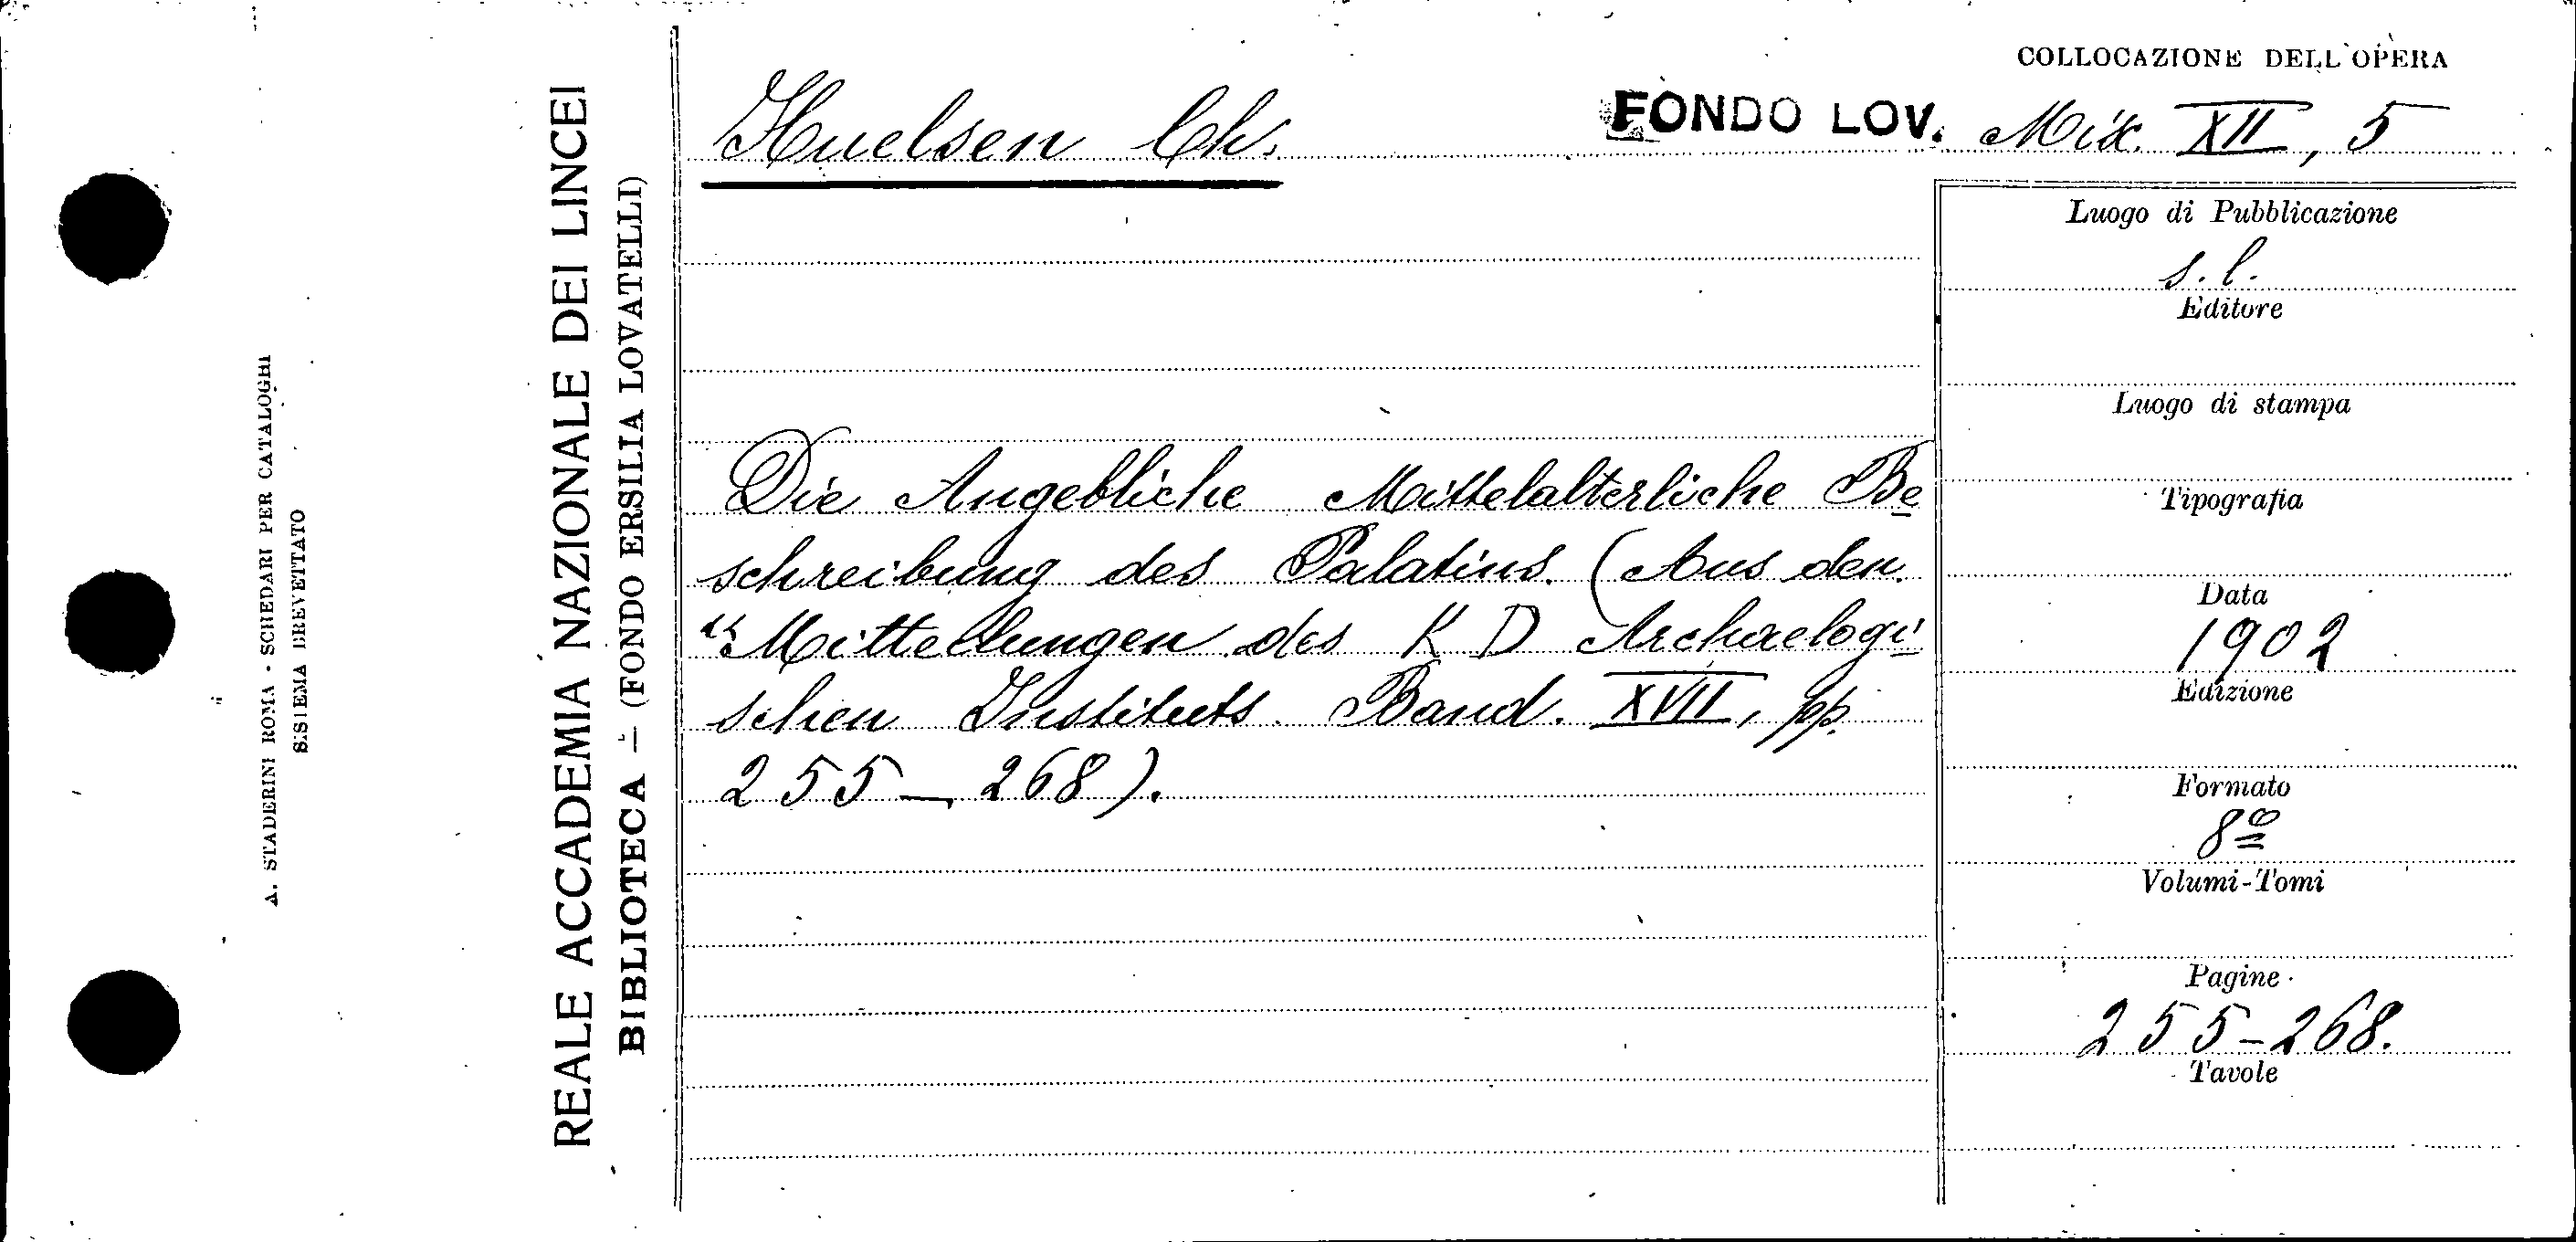 COLLOCAZIONE DELL'OPERA
Huelsen Ch.
FONDO LOV. Mix. XII, 5
Die Angebliche Mittelalterliche Be
schreibung des Palatins. (Aus den
"Mitteilungen des K D Archaelogi
schen Instituts. Band. XVII, pp.
255-268).
Luogo di Pubblicazione
s. l.
Editore
Luogo di stampa
Tipografia
Data
1902
Edizione
Formato
8º
Volumi-Tomi
Pagine
255-268.
Tavole
REALE ACCADEMIA NAZIONALE DEI LINCEI
BIBLIOTECA - (FONDO ERSILIA LOVATELLI)
A. STADERINI ROMA - SCHEDARI PER CATALOGHI
SISTEMA BREVETTATO